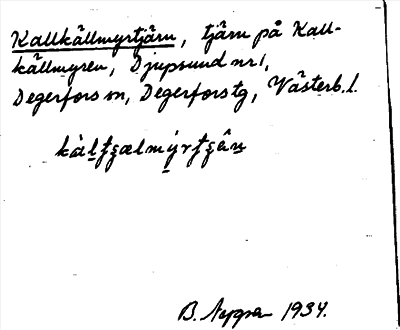 Kallkällmyrtjärn, tjärn på Kall-
källmyren, Djupsund nr 1,
Degerfors sn, Degerfors tg, Västerb. l.
B. Nygren 1934.